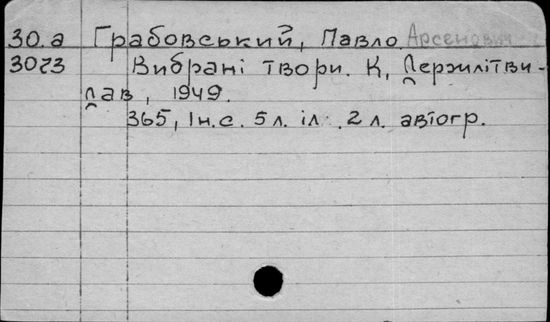 30.а Грабовський, Павло Арсенович
3023 Вибрані твори. К, Держлітви-
дав, 1949.
365, Iн.с. 5 л. іл. 2 л. автогр.